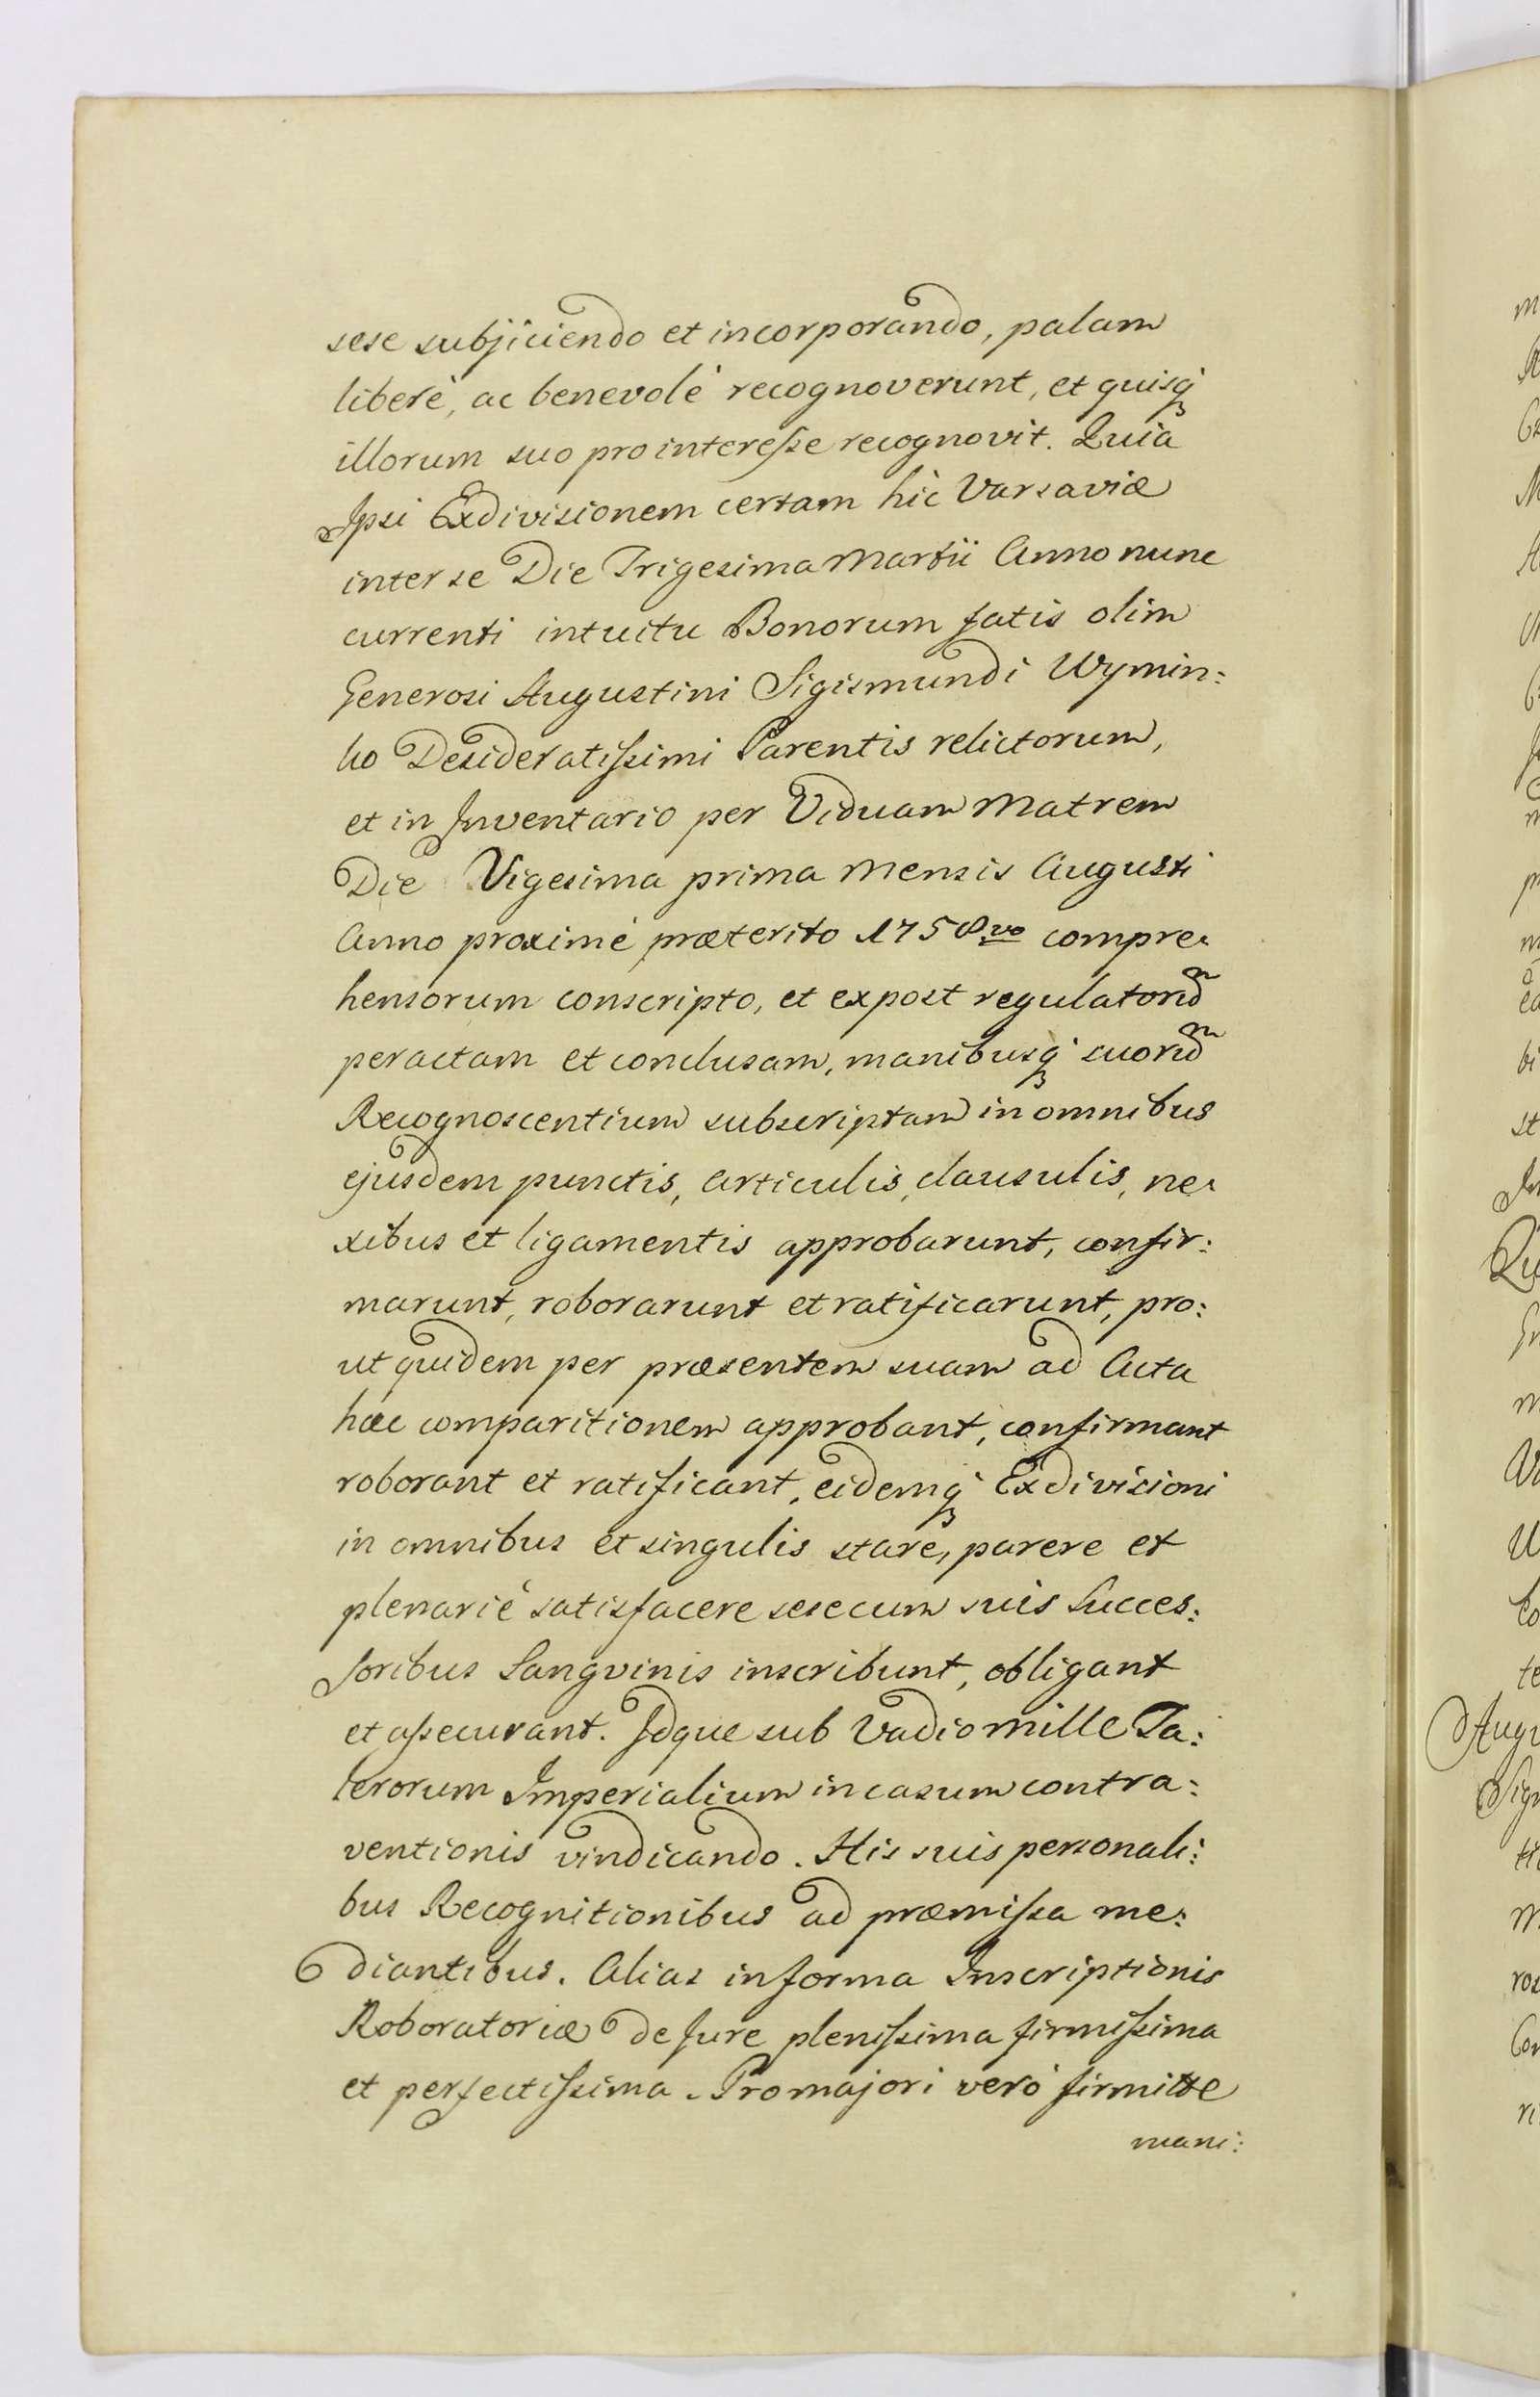 sese subjiciendo et incorporando, palam
liberè, ac benevolè recognoverunt, et quisq́
illorum suo pro interesse recognovit. Quia
Ipsi Exdivisionem certam hic Varsaviæ
inter se Die Trigesima Martii Anno nunc
currenti intuitu Bonorum fatis olim
Generosi Augustini Sigismundi Wymin:
ko Desideratissimi Parentis relictorum,
et in Inventario per Viduam Matrem
Die Vigesima prima Mensis Augusti
Anno proximè præterito 1758vo compre:
hensorum conscripto, et expost regulatorum
peractam et conclusam, manibusq́ suorum
Recognoscentium subscriptam in omnibus
ejusdem punctis, articulis, clausulis, ne:
xibus et ligamentis approbarunt, confir:
marunt, roborarunt et ratificarunt, pro:
ut quidem per præsentem suam ad Acta
hæc comparitionem approbant, confirmant
roborant et ratificant, eidemq́ Exdivisioni
in omnibus et singulis stare, parere et
plenariè satisfacere sese cum suis Succes:
soribus Sangvinis inscribunt, obligant
et assecurant. Idque sub Vadio Mille Ta:
lerorum Imperialium in casum contra:
ventionis vindicando. His suis personali:
bus Recognitionibus ad præmissa me:
diantibus. Alias in forma Inscriptionis
Roboratoriæ de Jure plenissima firmissima
et perfectissima. Pro majori verò firmitte
mani: